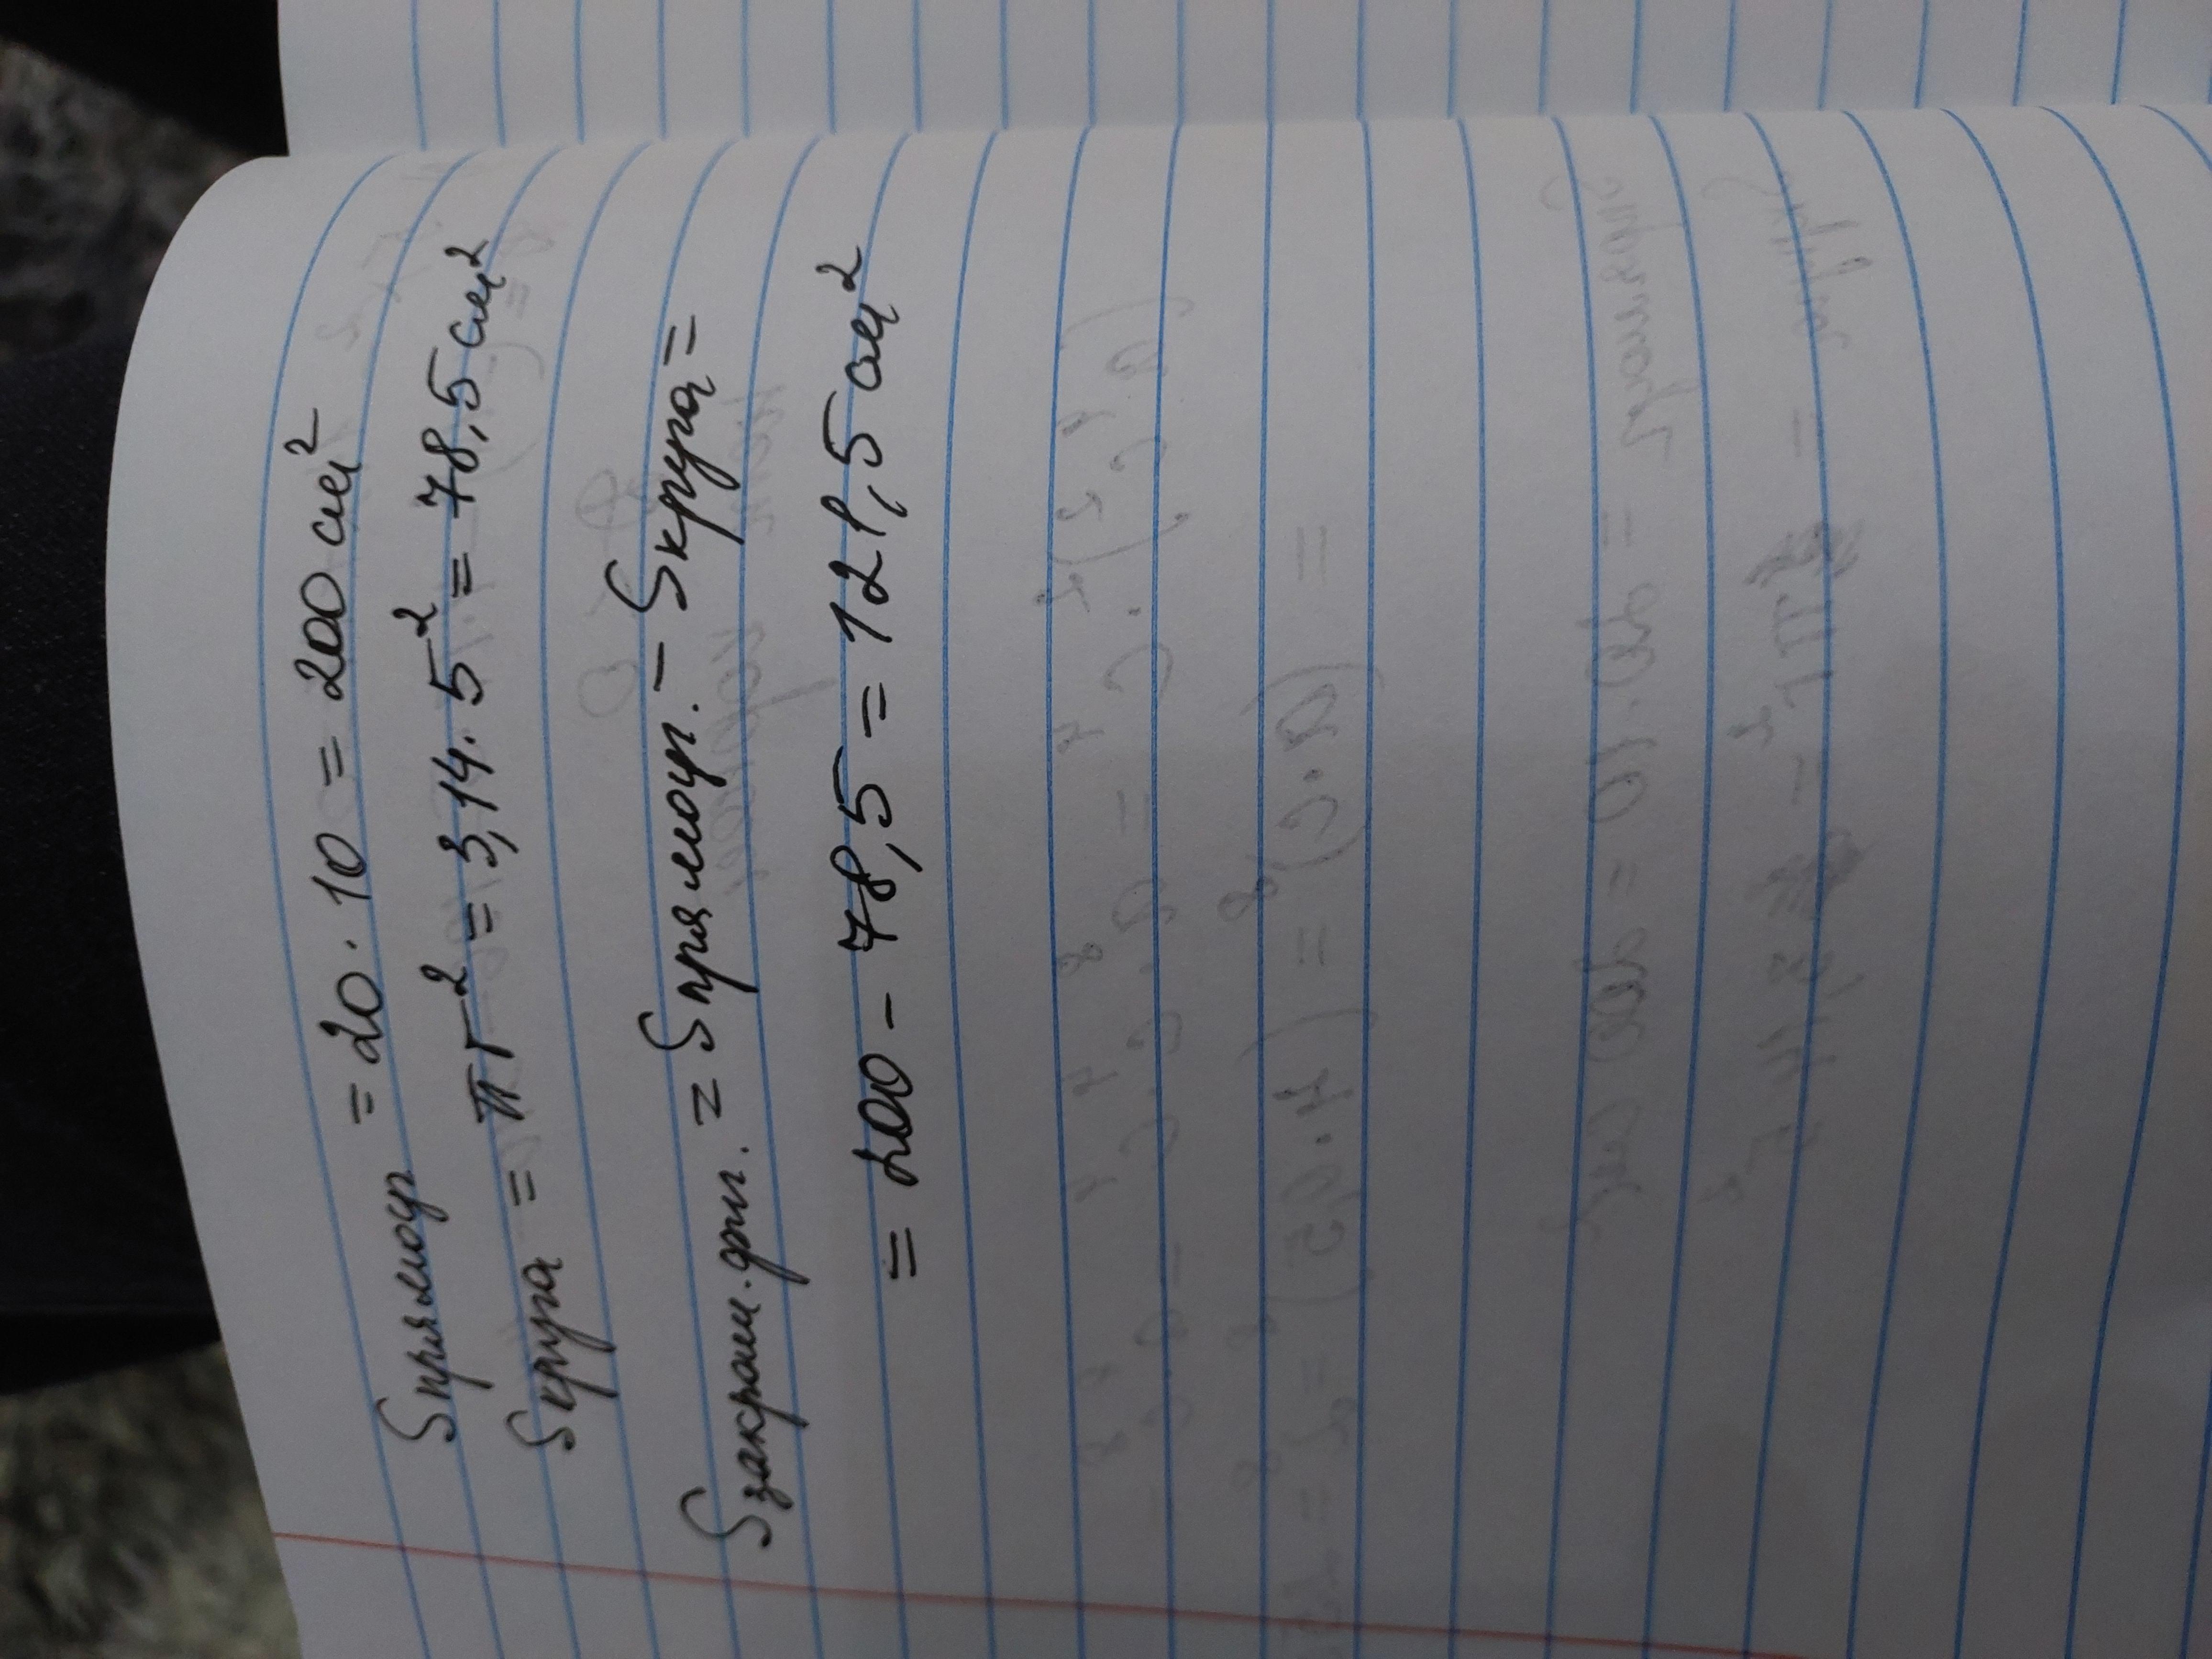 Sпрямоуг = 20 · 10 = 200 см²
Sкруга = πr² = 3,14 · 5² = 78,5 см²
Sзакраш. фиг. = Sпрямоуг. – Sкруга =
= 200 – 78,5 = 121,5 см²